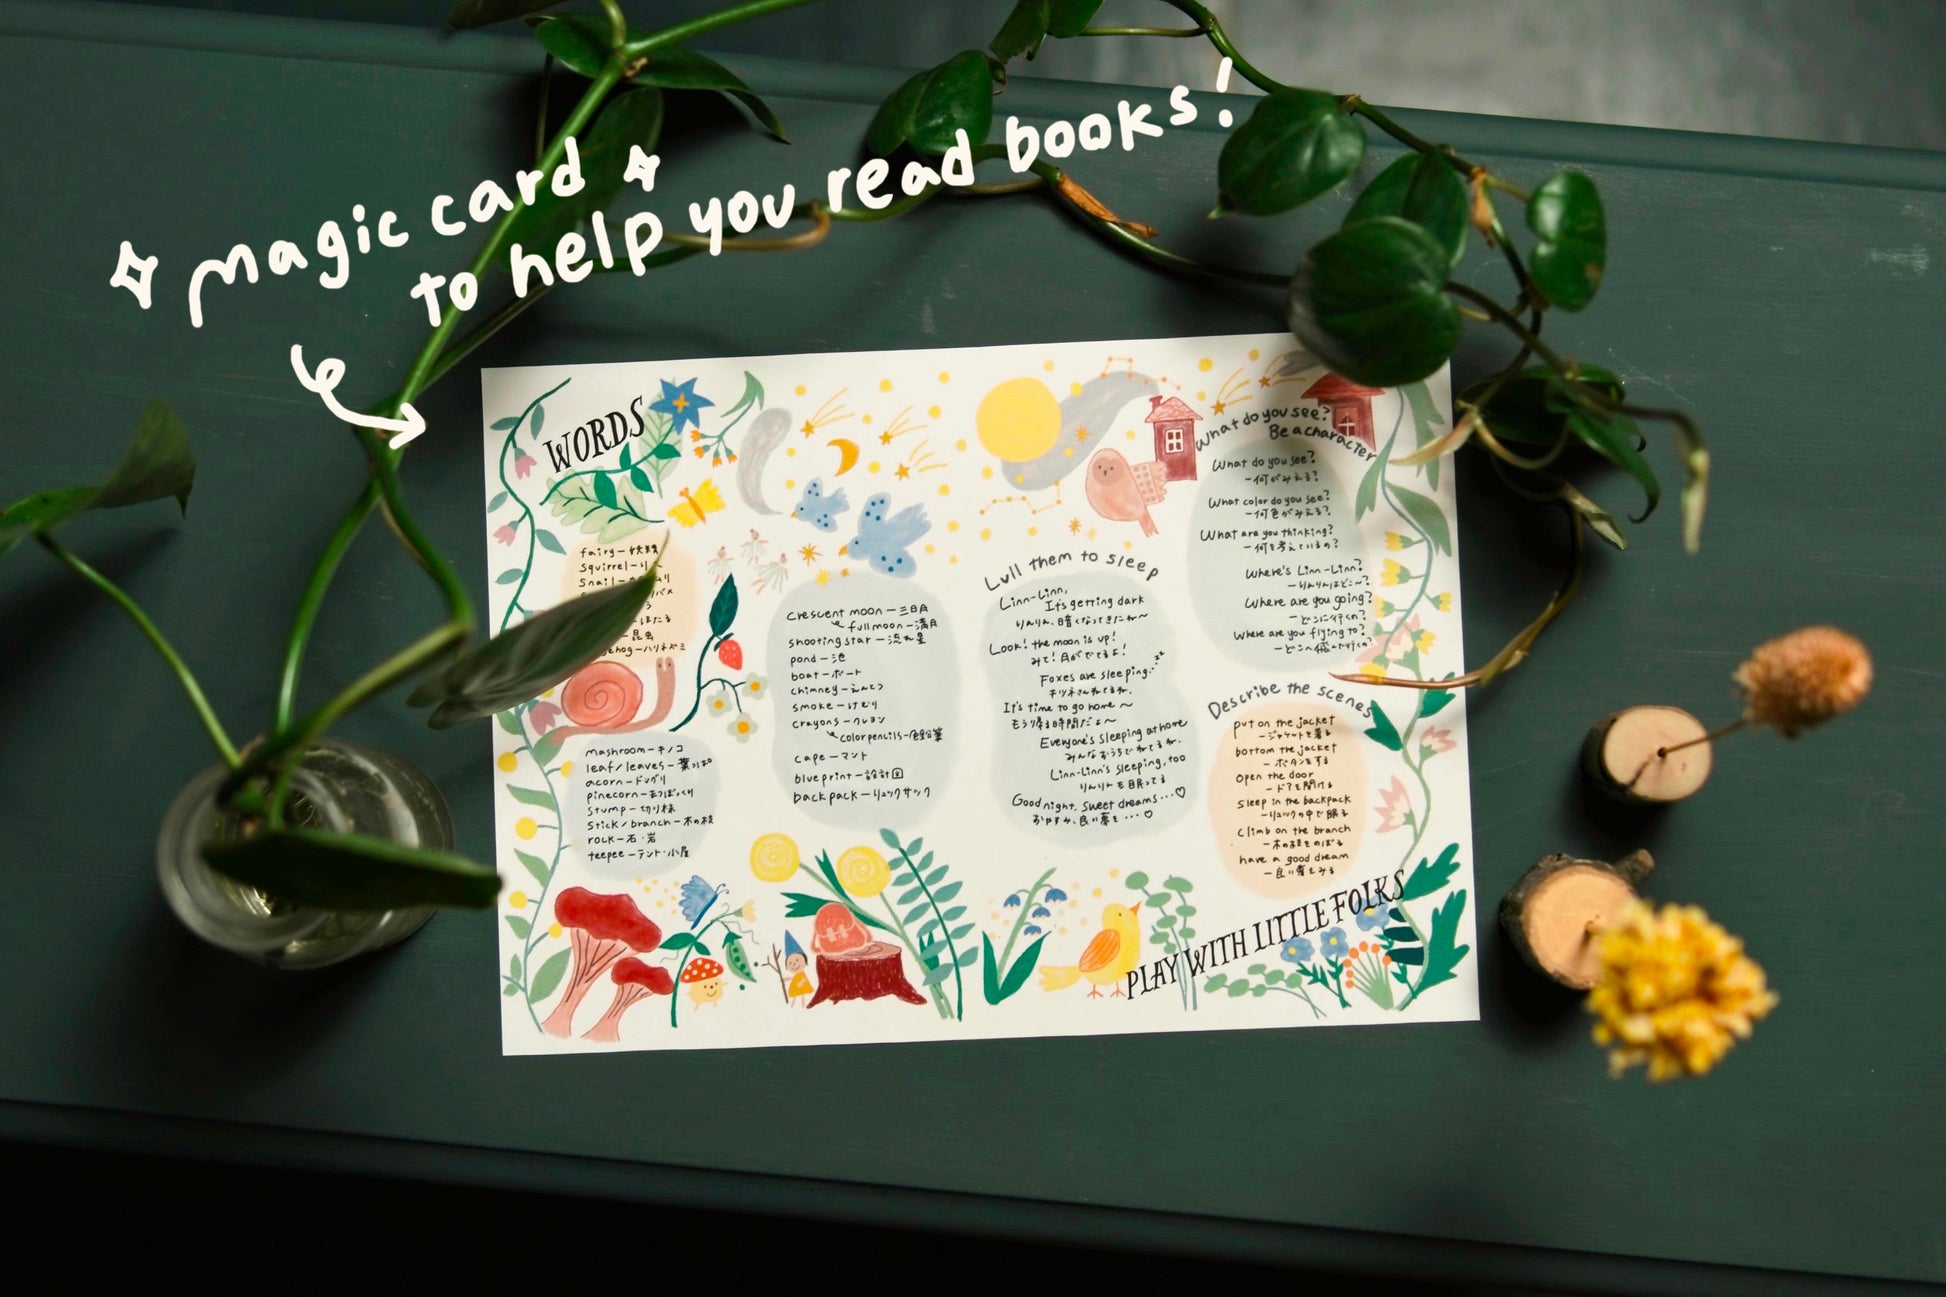 magic card
to help you read books!
WORDS
fairy－妖精
squirrel－り
snail－
－ほたる
－昆虫
－ハリネズミ
mashroom－キノコ
leaf/leaves－葉っぱ
acorn－ドングリ
pinecorn－まつぼっくり
stump－切り株
stick/branch－木の枝
rock－石・岩
teepee－テント・小屋
crescent moon－三日月
full moon－満月
shooting star－流れ星
pond－池
boat－ボート
chimney－えんとつ
smoke－けむり
crayons－クレヨン
color pencils－色鉛筆
cape－マント
blueprint－設計図
backpack－リュックサック
Lull them to sleep
Linn-Linn,
It's getting dark
りんりん、暗くなってきたね〜
Look! the moon is up!
みて!月がでてるよ!
Foxes are sleeping...zz
キツネさんねてるね.
It's time to go home〜
もう帰る時間だよ〜
Everyone's sleeping at home
みんなおうちでねてるね.
Linn-Linn's sleeping, too
りんりんも眠ってる
Good night, sweet dreams...♡
おやすみ、良い夢を...♡
What do you see?
Be a character
What do you see?
－何がみえる?
What color do you see?
－何色がみえる?
What are you thinking?
－何を考えているの?
Where's Linn-Linn?
－りんりんはどこ〜?
Where are you going?
－どこに行くの?
Where are you flying to?
－どこへ飛んで行くの?
Describe the scenes
put on the jacket
－ジャケットを着る
bottom the jacket
－ボタンをする
Open the door
－ドアを開ける
Sleep in the backpack
－リュックの中で眠る
Climb on the branch
－木の枝をのぼる
have a good dream
－良い夢をみる
PLAY WITH LITTLE FOLKS